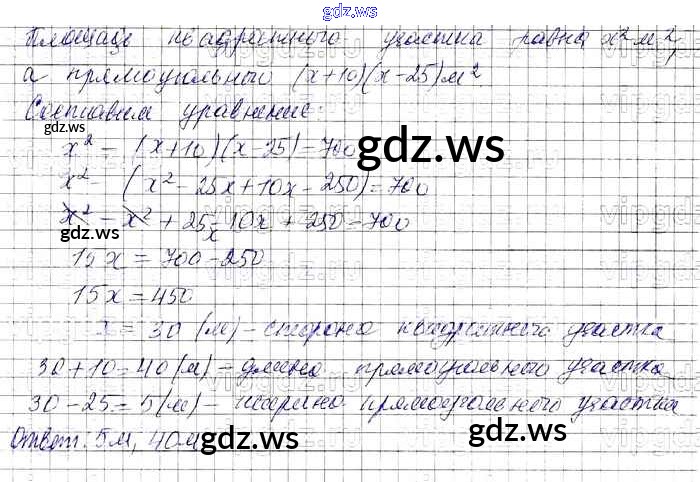 gdz.ws
Площадь квадратного участка равна x² м²,
а прямоугольного (x+10)(x-25) м².
Составим уравнение:
x² - (x+10)(x-25) = 700
gdz.ws
x² - (x² - 25x + 10x - 250) = 700
x² - x² + 25x - 10x + 250 = 700
gdz.ws
15x = 700 - 250
15x = 450
x = 30 (м) - сторона квадратного участка
30 + 10 = 40 (м) - длина прямоугольного участка
30 - 25 = 5 (м) - ширина прямоугольного участка
Ответ: 5 м, 40 м
gdz.ws
gdz.ws